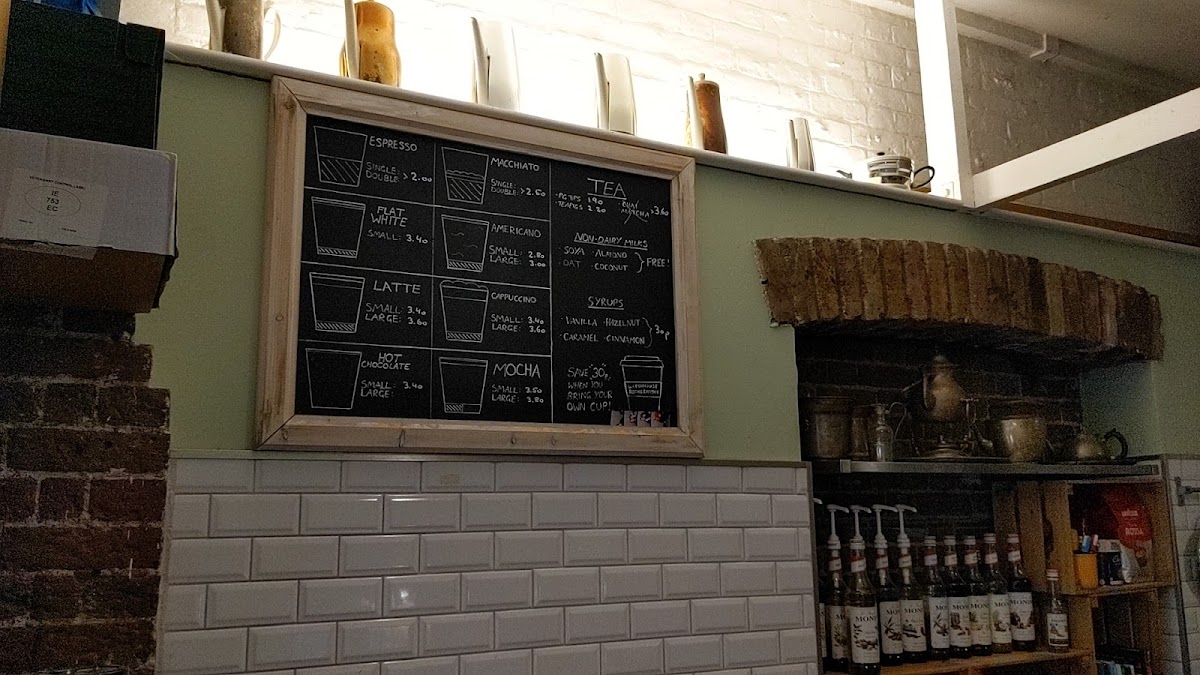 ESPRESSO
SINGLE:
DOUBLE > 2.00
MACCHIATO
SINGLE:
DOUBLE: > 2.50
FLAT
WHITE
SMALL: 3.40
AMERICANO
SMALL: 2.80
LARGE: 3.00
LATTE
SMALL: 3.40
LARGE: 3.60
CAPPUCCINO
SMALL: 3.40
LARGE: 3.60
HOT
CHOCOLATE
SMALL: 3.40
LARGE:
MOCHA
SMALL: 3.50
LARGE: 3.80
TEA
· PG TIPS 1.90
· TEAPIGS 2.20
· CHAI
MATCHA > 3.60
NON-DAIRY MILKS
· SOYA · ALMOND
· OAT · COCONUT
FREE!
SYRUPS
· VANILLA · HAZELNUT
· CARAMEL · CINNAMON
30p
SAVE 30p
WHEN YOU
BRING YOUR
OWN CUP!
IE
753
EC
MONIN
ROSSA